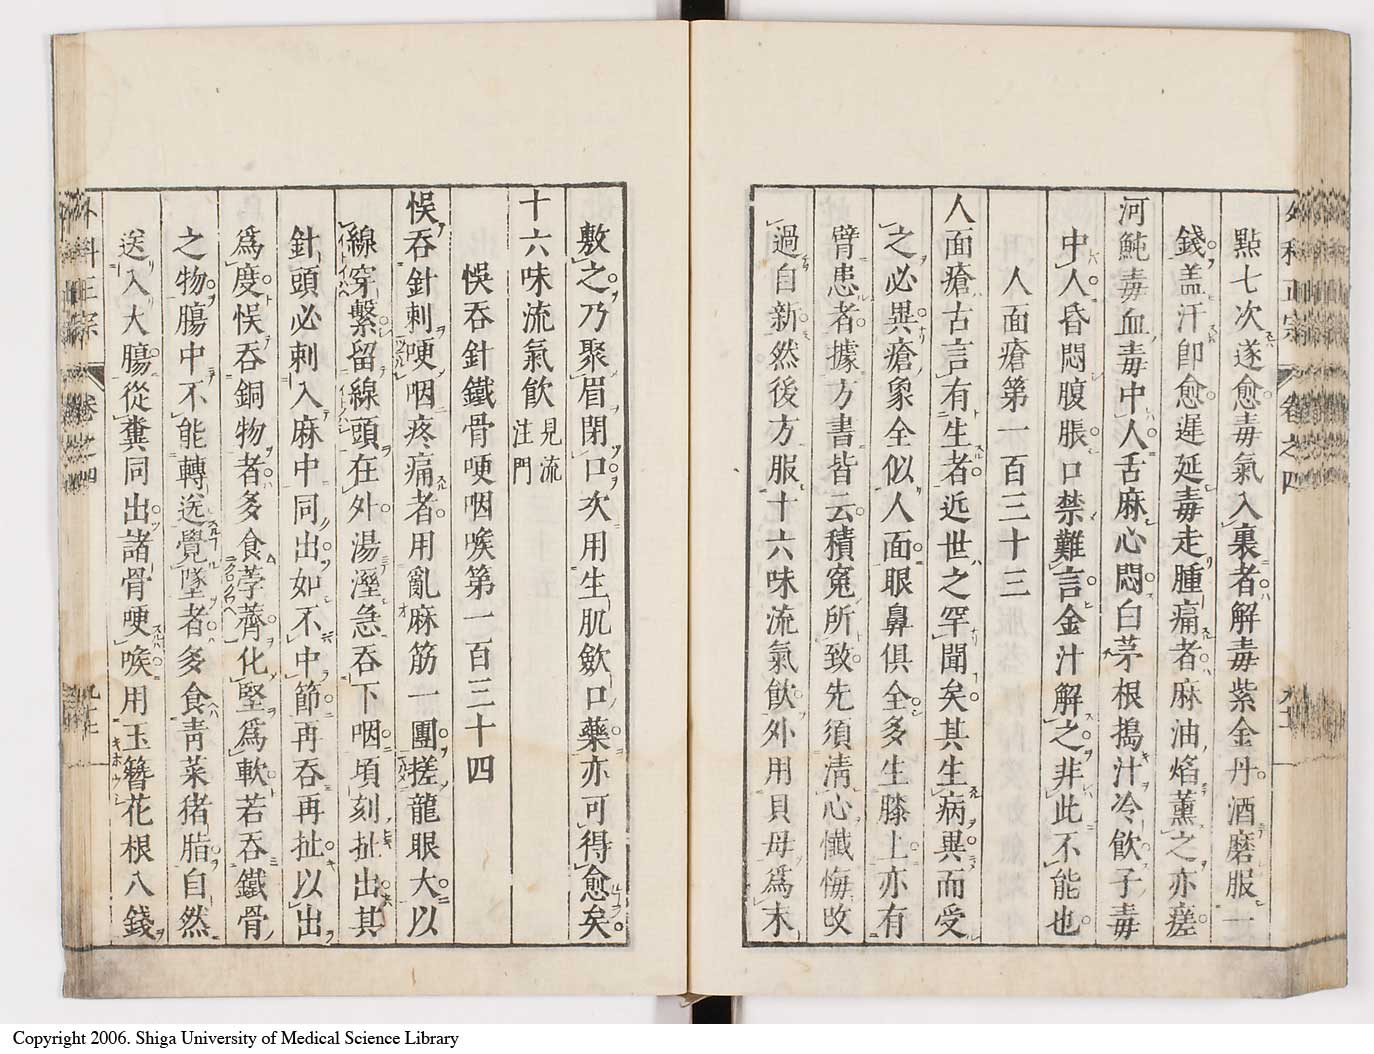 外科正宗 卷之四
點七次遂愈毒氣入裏者解毒紫金丹酒磨服一
錢盖汗卽愈遲延毒走腫痛者麻油焰薰之亦瘥
河魨毒血毒中人舌麻心悶白茅根搗汁冷飮子毒
中人昏悶腹脹口禁難言金汁解之非此不能也
人面瘡第一百三十三
人面瘡古言有生者近世之罕聞矣其生病異而受
之必異瘡象全似人面眼鼻俱全多生膝上亦有
臂患者據方書皆云積寃所致先須淸心懺悔改
過自新然後方服十六味流氣飮外用貝母爲末
敷之乃聚眉閉口次用生肌斂口藥亦可得愈矣
十六味流氣飮 見流注門
悞吞針鐵骨哽咽喉第一百三十四
悞吞針刺哽咽疼痛者用亂麻筋一團搓龍眼大以
線穿繫留線頭在外湯溼急吞下咽頃刻扯出其
針頭必刺入麻中同出如不中節再吞再扯以出
爲度悞吞銅物者多食荸薺化堅爲軟若吞鐵骨
之物膓中不能轉送覺墜者多食靑菜猪脂自然
送入大膓從糞同出諸骨哽喉用玉簪花根八錢
外科正宗 卷之四
Copyright 2006. Shiga University of Medical Science Library